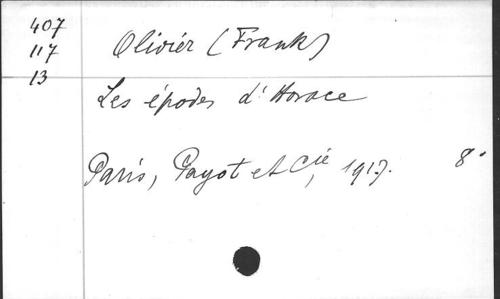 407
117
13
Olivier (Frank)
Les épodes d'Horace
Paris, Payot et Cie, 1917. 8°